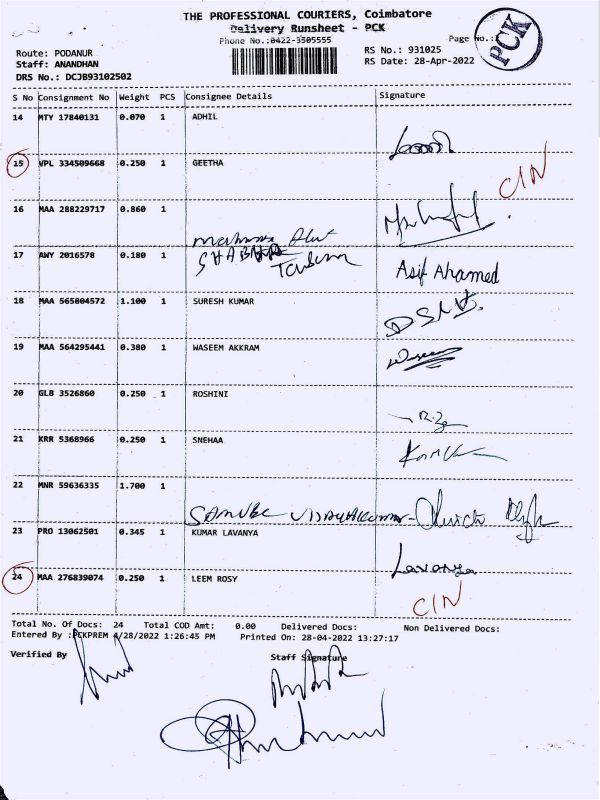 THE PROFESSIONAL COURIERS, Coimbatore
Delivery Runsheet - PCK
Phone No.:0422-3505555
Page No.:
PCK
Route: PODANUR
RS No.: 931025
Staff: ANANDHAN
RS Date: 28-Apr-2022
DRS No.: DCJB93102502
S No Consignment No Weight PCS Consignee Details Signature
14 MTY 17840131 0.070 1 ADHIL
15 VPL 334509668 0.250 1 GEETHA CIN
16 MAA 288229717 0.860 1
17 AWY 2016578 0.180 1 Asif Ahamed
18 MAA 565804572 1.100 1 SURESH KUMAR
19 MAA 564295441 0.380 1 WASEEM AKKRAM
20 GLB 3526860 0.250 1 ROSHINI
21 KRR 5368966 0.250 1 SNEHAA
22 MNR 59636335 1.700 1
23 PRO 13062501 0.345 1 KUMAR LAVANYA Lavanya
24 MAA 276839074 0.250 1 LEEM ROSY CIN
Total No. Of Docs: 24 Total COD Amt: 0.00 Delivered Docs: Non Delivered Docs:
Entered By :PCKPREM 4/28/2022 1:26:45 PM Printed On: 28-04-2022 13:27:17
Verified By Staff Signature